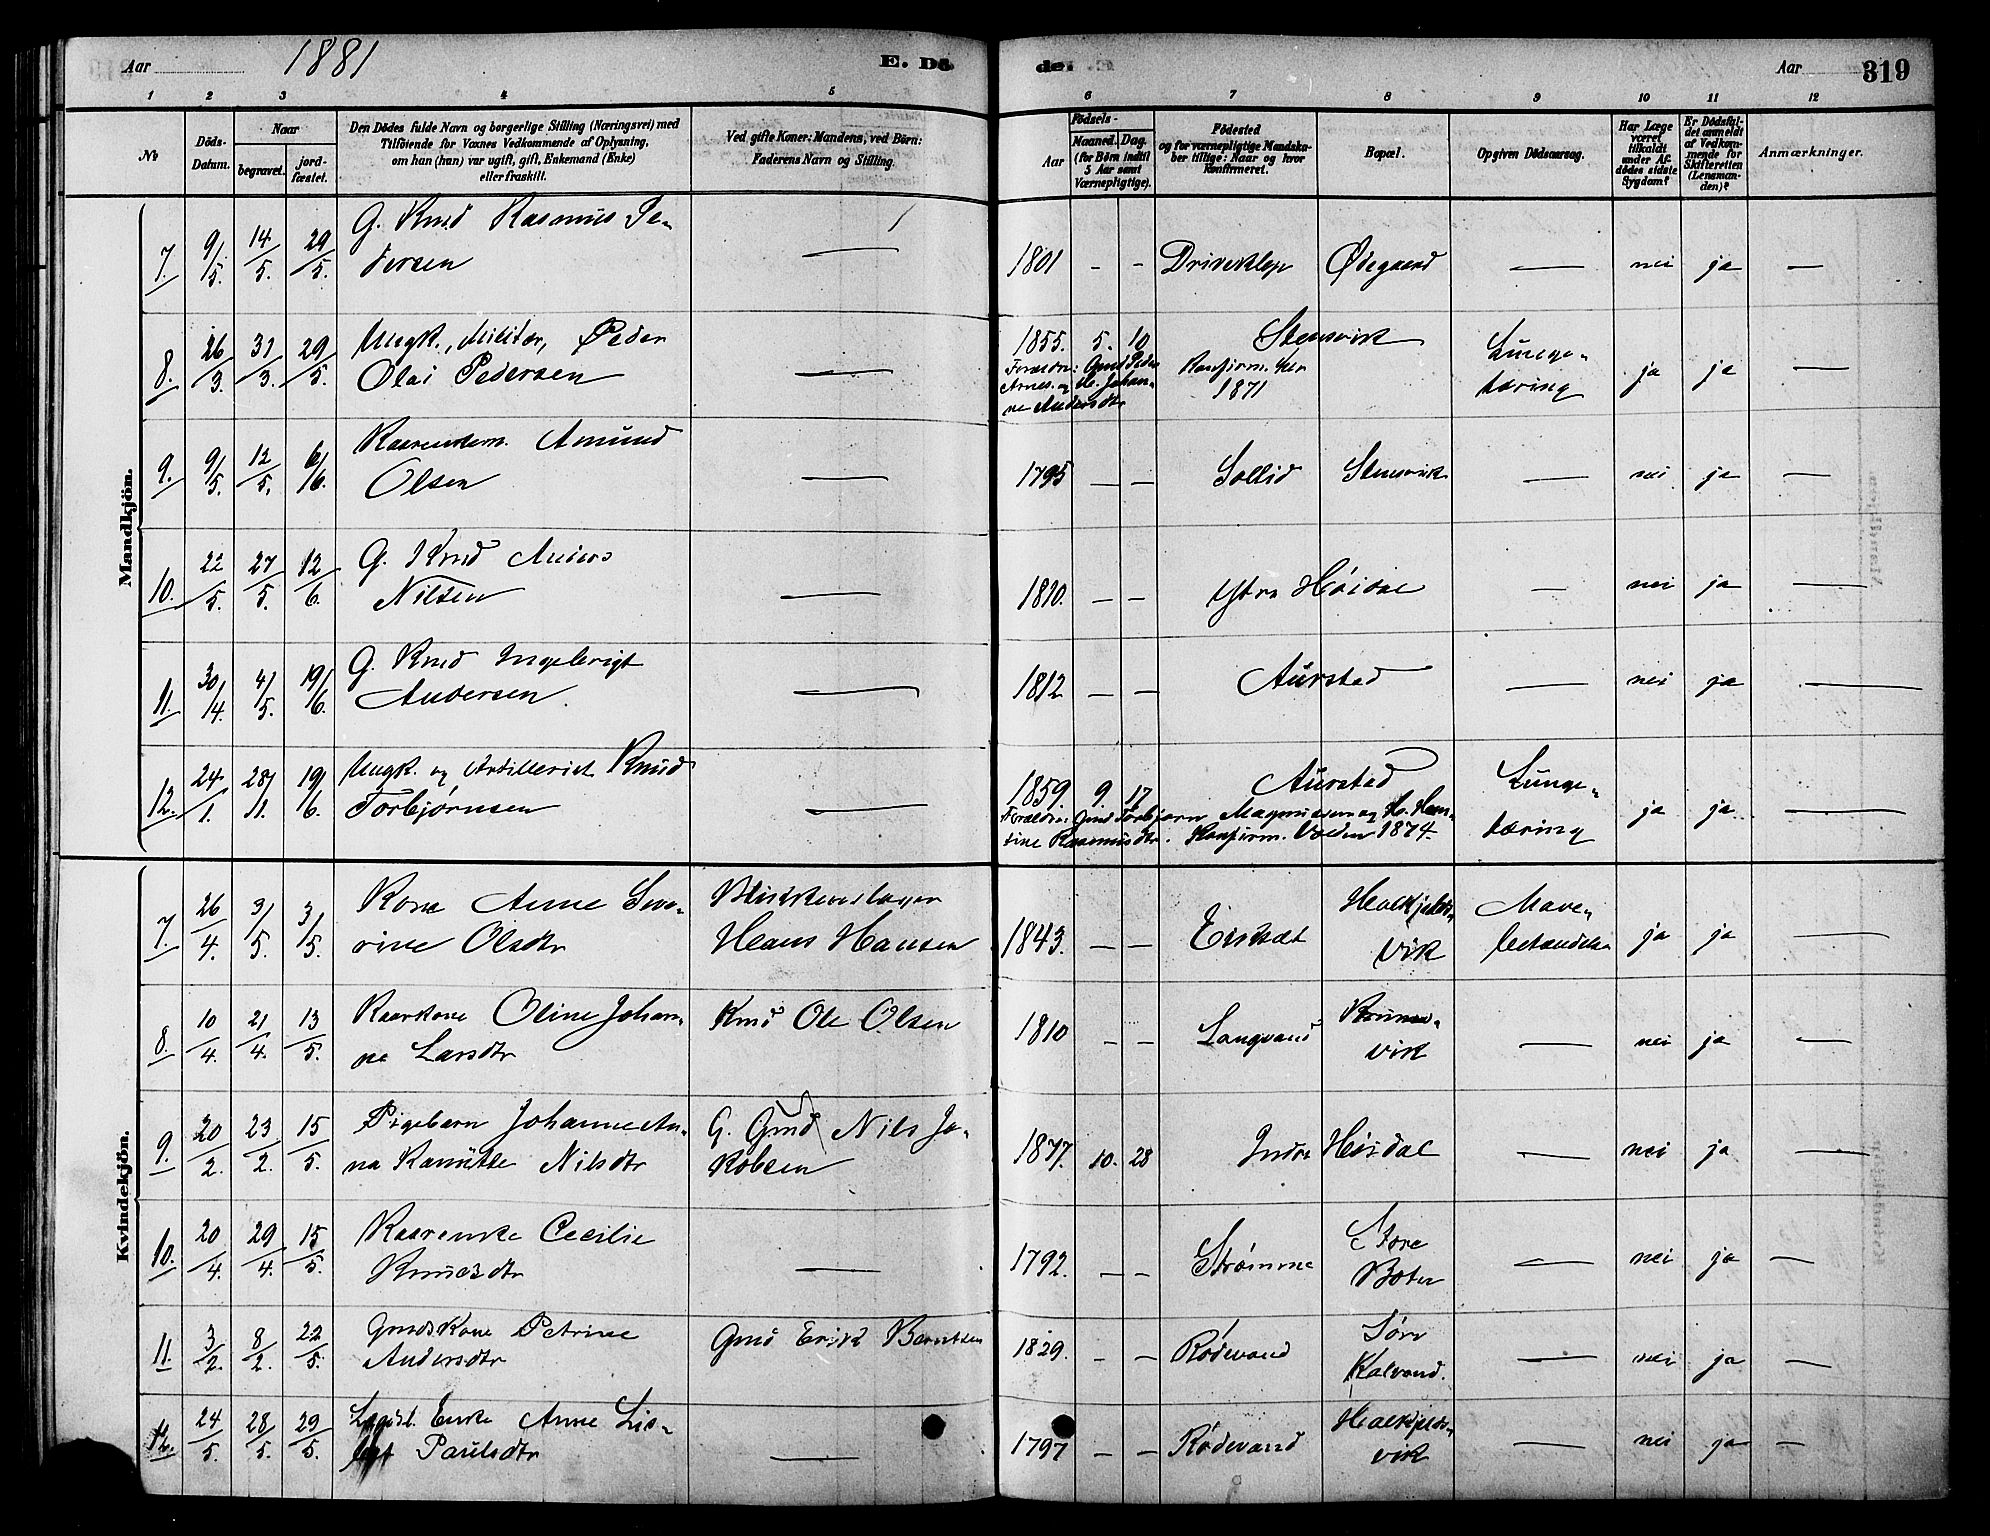 Aar 1881 E. Dö-
de. Aar 319
1 2 3 4 5 6 7 8 9 10 11 12
No
Döds-
Datum.
Naar
begravet.
jord-
fæstet.
Den Dödes fulde Navn og borgerlige Stilling (Næringsvei) med
Tilföiende for Voxnes Vedkommende af Oplysning,
om han (hun) var ugift, gift, Enkemand (Enke)
eller fraskilt.
Ved gifte Koner: Mandens, ved Börn:
Faderens Navn og Stilling.
Födsels-
Aar
Maaned. Dag.
(for Börn indtil
5 Aar samt
Værnepligtige).
Födested
og for værnepligtige Mandska-
ber tillige: Naar og hvor
konfirmeret.
Bopæl.
Opgiven Dödsaarsag.
Har Læge
været
tilkaldt
under Af-
dödes sidste
Sygdom?
Er Dödsfal-
det anmeldt
af Vedkom-
mende for
Skifteretten
(Lensman-
den)?
Anmærkninger.
Mandkjön.
7. 9/5. 14/5. 29/5. G. Kmd Rasmus Pe-
dersen — 1801 - - Driveklep Ødegaard — nei ja —
8. 26/3. 31/3. 29/5. Ungk., Militær, Peder
Olai Pedersen — 1855. 5. 10 Stensvik Lunge-
tæring ja ja —
Forældre: Gmd Peder
Arnes. og H. Johan-
ne Andersdtr
Konfirm. her
1871
9. 9/5. 12/5. 6/6. Kaarenkem. Amund
Olsen — 1795 — — Sollid Stensvik — nei ja —
10. 22/5. 27/5. 12/6. G. Kmd Anders
Nilsen — 1810. — — Ytre Høidal — nei ja —
11. 30/4. 4/5. 19/6. G. Kmd Ingebrigt
Andersen. — 1812 — — Aurstad — nei ja —
12. 24/1. 28/1. 19/6. Ungk. og Artillerist Knud
Torbjørnsen — 1859. 9. 17 Aurstad Lunge-
tæring ja ja —
Forældre: Gmd Torbjørn Magnussen og H. Han-
sine Rasmusdtr. Konfirm. Volden 1874.
Kvindekjön.
7. 26/4. 3/5. 3/5. Kone Anne Seve-
rine Olsdtr Blikkenslager
Hans Hansen 1843. — — Eiksæt Halkjelds-
vik Mave-
betændelse ja ja —
8. 10/4. 21/4. 13/5. Kaarkone Oline Johan-
ne Larsdtr Kmd Ole Olsen 1810 - - Langvand
vik — nei ja —
9. 20/2. 23/2. 15/5. Pigebarn Johanne An-
na Kamitte Nilsdtr G. Gmd Nils Ja-
kobsen 1877. 10. 28 Indre Høidal — nei ja —
10. 20/4. 29/4. 15/5. Kaarenke Cecilie
Knudsdtr — 1792. — — Strømme Store
Boten — nei ja —
11. 3/2. 8/2. 22/5. Gmdskone Petrine
Andersdtr Gmd Erik Berntsen 1829. - - Rødevand Søre
Kalvand. — nei ja —
12. 24/5. 28/5. 29/5. Enke Anne Lis-
bet Paulsdtr — 1797 - - Rødevand Halkjelds-
vik — nei ja —